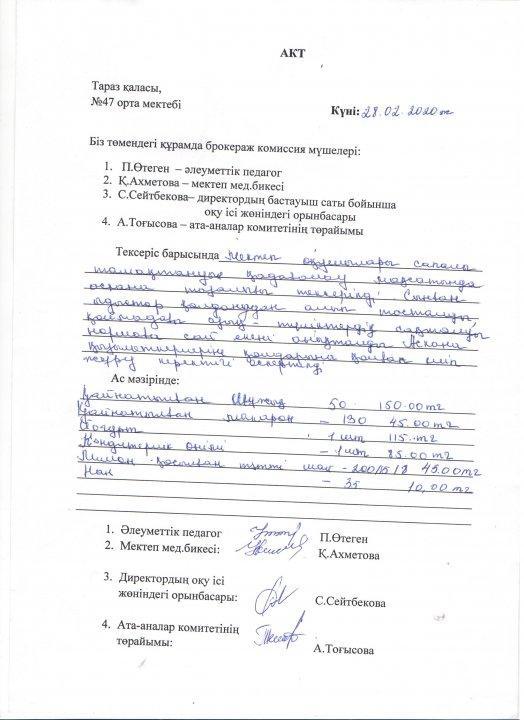 АКТ
Тараз қаласы,
№47 орта мектебі
Күні: 28.02.2020ж
Біз төмендегі құрамда брокераж комиссия мүшелері:
1. П.Өтеген – әлеуметтік педагог
2. Қ.Ахметова – мектеп мед.бикесі
3. С.Сейтбекова– директордың бастауыш саты бойынша
оқу ісі жөніндегі орынбасары
4. А.Тоғысова – ата-аналар комитетінің төрайымы
Тексеріс барысында мектеп оқушылары сапалы
тамақтануын қадағалау мақсатында
асхана тазалығы тексерілді. Сынған
ыдыстар қолданудан алып тасталды,
азық - түліктердің сақталуы
нормаға сай екені анықталды. Асхана
қызметкерлеріне қолдарына қолғап киіп
жүру керектігі ескертілді
Ас мәзірінде:
Қайнатылған 50 150.00тг
Қайнатылған макарон – 130 45.00тг
Йогурт – 1шт 115.тг
Кондитерлік өнімі – 1шт 85.00тг
Лимон қосылған тәтті шай – 200/15/8 45.00тг
Нан – 35 10,00тг
1. Әлеуметтік педагог П.Өтеген
2. Мектеп мед.бикесі: Қ.Ахметова
3. Директордың оқу ісі
жөніндегі орынбасары: С.Сейтбекова
4. Ата-аналар комитетінің
төрайымы: А.Тоғысова